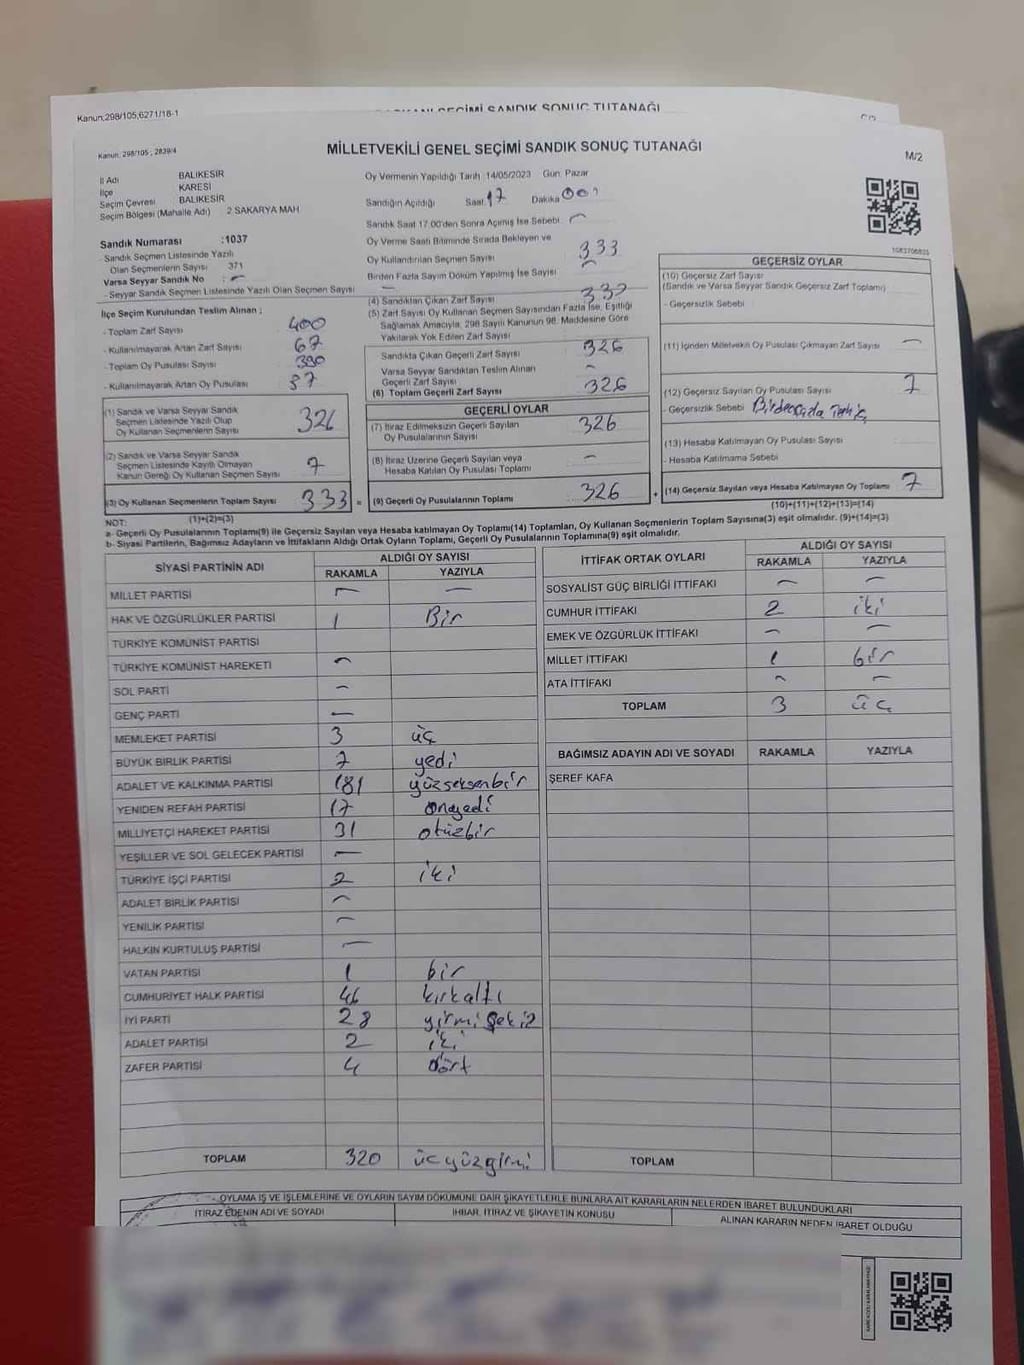 Kanun;298/105,6271/18-1
SEÇİMİ SANDIK SONUÇ TUTANAĞI
Kanun: 298/105 ; 2839/4
MİLLETVEKİLİ GENEL SEÇİMİ SANDIK SONUÇ TUTANAĞI
M/2
İl Adı BALIKESİR
İlçe KARESİ
Seçim Çevresi BALIKESİR
Seçim Bölgesi (Mahalle Adı) 2 SAKARYA MAH
Oy Vermenin Yapıldığı Tarih :14/05/2023 Gün: Pazar
Sandığın Açıldığı Saat: 17 Dakika 00
Sandık Saat 17:00'den Sonra Açılmış İse Sebebi: -
Oy Verme Saati Bitiminde Sırada Bekleyen ve
Oy Kullandırılan Seçmen Sayısı 333
Birden Fazla Sayım Döküm Yapılmış İse Sayısı -
Sandık Numarası :1037
- Sandık Seçmen Listesinde Yazılı
Olan Seçmenlerin Sayısı 371
Varsa Seyyar Sandık No : -
- Seyyar Sandık Seçmen Listesinde Yazılı Olan Seçmen Sayısı : -
İlçe Seçim Kurulundan Teslim Alınan ;
- Toplam Zarf Sayısı 400
- Kullanılmayarak Artan Zarf Sayısı 67
- Toplam Oy Pusulası Sayısı
- Kullanılmayarak Artan Oy Pusulası 37
(1) Sandık ve Varsa Seyyar Sandık
Seçmen Listesinde Yazılı Olup
Oy Kullanan Seçmenlerin Sayısı 326
(2) Sandık ve Varsa Seyyar Sandık
Seçmen Listesinde Kayıtlı Olmayan
Kanun Gereği Oy Kullanan Seçmen Sayısı 7
(3) Oy Kullanan Seçmenlerin Toplam Sayısı 333 =
(1)+(2)=(3)
(4) Sandıktan Çıkan Zarf Sayısı 333
(5) Zarf Sayısı Oy Kullanan Seçmen Sayısından Fazla İse, Eşitliği
Sağlamak Amacıyla, 298 Sayılı Kanunun 98. Maddesine Göre
Yakılarak Yok Edilen Zarf Sayısı
Sandıkta Çıkan Geçerli Zarf Sayısı 326
Varsa Seyyar Sandıktan Teslim Alınan
Geçerli Zarf Sayısı -
(6) Toplam Geçerli Zarf Sayısı 326
GEÇERLİ OYLAR
(7) İtiraz Edilmeksizin Geçerli Sayılan
Oy Pusulalarının Sayısı 326
(8) İtiraz Üzerine Geçerli Sayılan veya
Hesaba Katılan Oy Pusulası Toplamı -
(9) Geçerli Oy Pusulalarının Toplamı 326 +
GEÇERSİZ OYLAR
(10) Geçersiz Zarf Sayısı
(Sandık ve Varsa Seyyar Sandık Geçersiz Zarf Toplamı)
- Geçersizlik Sebebi
(11) İçinden Milletvekili Oy Pusulası Çıkmayan Zarf Sayısı -
(12) Geçersiz Sayılan Oy Pusulası Sayısı 7
- Geçersizlik Sebebi Birden fazla
(13) Hesaba Katılmayan Oy Pusulası Sayısı
- Hesaba Katılmama Sebebi
(14) Geçersiz Sayılan veya Hesaba Katılmayan Oy Toplamı 7
(10)+(11)+(12)+(13)=(14)
NOT:
a- Geçerli Oy Pusulalarının Toplamı(9) ile Geçersiz Sayılan veya Hesaba katılmayan Oy Toplamı(14) Toplamları, Oy Kullanan Seçmenlerin Toplam Sayısına(3) eşit olmalıdır. (9)+(14)=(3)
b- Siyasi Partilerin, Bağımsız Adayların ve İttifakların Aldığı Ortak Oyların Toplamı, Geçerli Oy Pusulalarının Toplamına(9) eşit olmalıdır.
SİYASİ PARTİNİN ADI ALDIĞI OY SAYISI
RAKAMLA YAZIYLA
MİLLET PARTİSİ - -
HAK VE ÖZGÜRLÜKLER PARTİSİ 1 Bir
TÜRKİYE KOMÜNİST PARTİSİ
TÜRKİYE KOMÜNİST HAREKETİ -
SOL PARTİ -
GENÇ PARTİ -
MEMLEKET PARTİSİ 3 üç
BÜYÜK BİRLİK PARTİSİ 7 yedi
ADALET VE KALKINMA PARTİSİ 181 yüzseksenbir
YENİDEN REFAH PARTİSİ 17 onyedi
MİLLİYETÇİ HAREKET PARTİSİ 31 otüzbir
YEŞİLLER VE SOL GELECEK PARTİSİ -
TÜRKİYE İŞÇİ PARTİSİ 2 iki
ADALET BİRLİK PARTİSİ -
YENİLİK PARTİSİ -
HALKIN KURTULUŞ PARTİSİ -
VATAN PARTİSİ 1 bir
CUMHURİYET HALK PARTİSİ 46 kırkaltı
İYİ PARTİ 28 yirmi sekiz
ADALET PARTİSİ 2 iki
ZAFER PARTİSİ 4 dört
TOPLAM 320 üçyüzyirmi
İTTİFAK ORTAK OYLARI ALDIĞI OY SAYISI
RAKAMLA YAZIYLA
SOSYALİST GÜÇ BİRLİĞİ İTTİFAKI - -
CUMHUR İTTİFAKI 2 iki
EMEK VE ÖZGÜRLÜK İTTİFAKI - -
MİLLET İTTİFAKI 1 bir
ATA İTTİFAKI - -
TOPLAM 3 üç
BAĞIMSIZ ADAYIN ADI VE SOYADI RAKAMLA YAZIYLA
ŞEREF KAFA
TOPLAM
OYLAMA İŞ VE İŞLEMLERİNE VE OYLARIN SAYIM DÖKÜMÜNE DAİR ŞİKAYETLERLE BUNLARA AİT KARARLARIN NELERDEN İBARET BULUNDUKLARI
İTİRAZ EDENİN ADI VE SOYADI İHBAR, İTİRAZ VE ŞİKAYETİN KONUSU ALINAN KARARIN NEDEN İBARET OLDUĞU